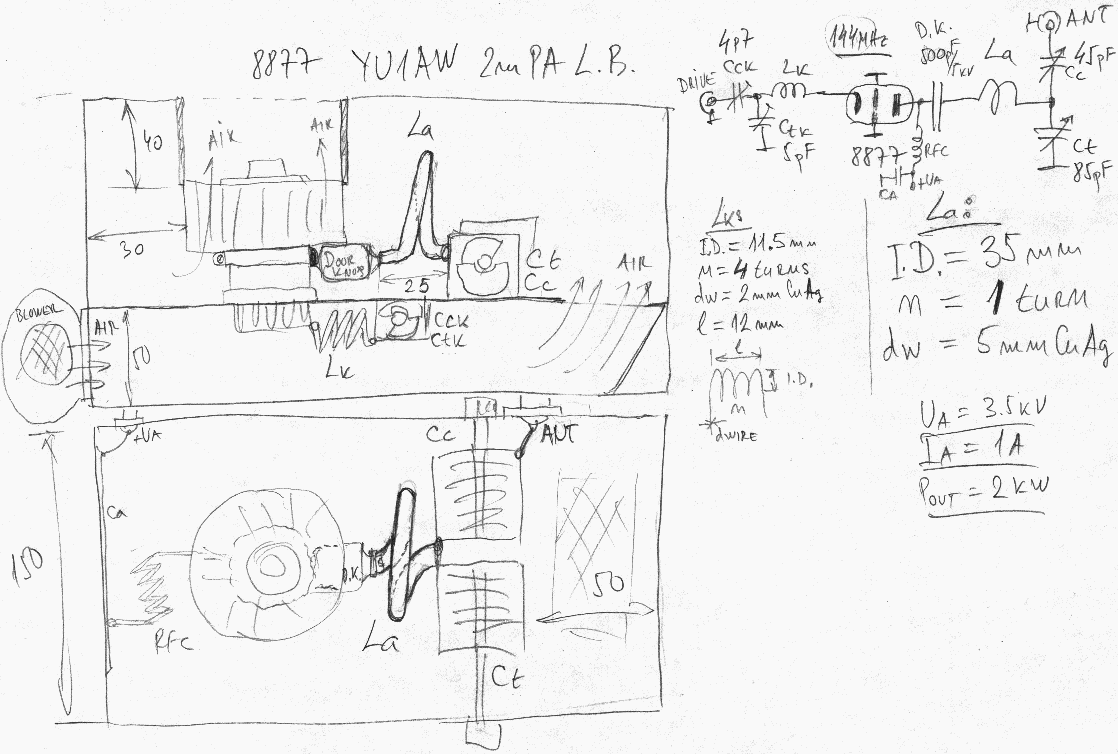 8877 YU1AW 2m PA L.B.
40
AIR
AIR
La
30
DOOR
KNOB
25
Ct
Cc
AIR
BLOWER
AIR
50
Lk
CcK
CtK
+UA
Cc
ANT
Ca
150
D.K.
RFC
La
Ct
50
4p7
CcK
Lk
144MHz
D.K.
500pF
/5kV
La
ANT
45pF
Cc
DRIVE
CtK
5pF
8877
RFC
CA
+UA
Ct
85pF
Lk:
I.D. = 11.5 mm
n = 4 turns
dw = 2mm CuAg
l = 12 mm
l
I.D.
n
dWIRE
La:
I.D. = 35 mm
n = 1 turn
dw = 5 mm CuAg
UA = 3.5kV
IA = 1A
POUT = 2KW